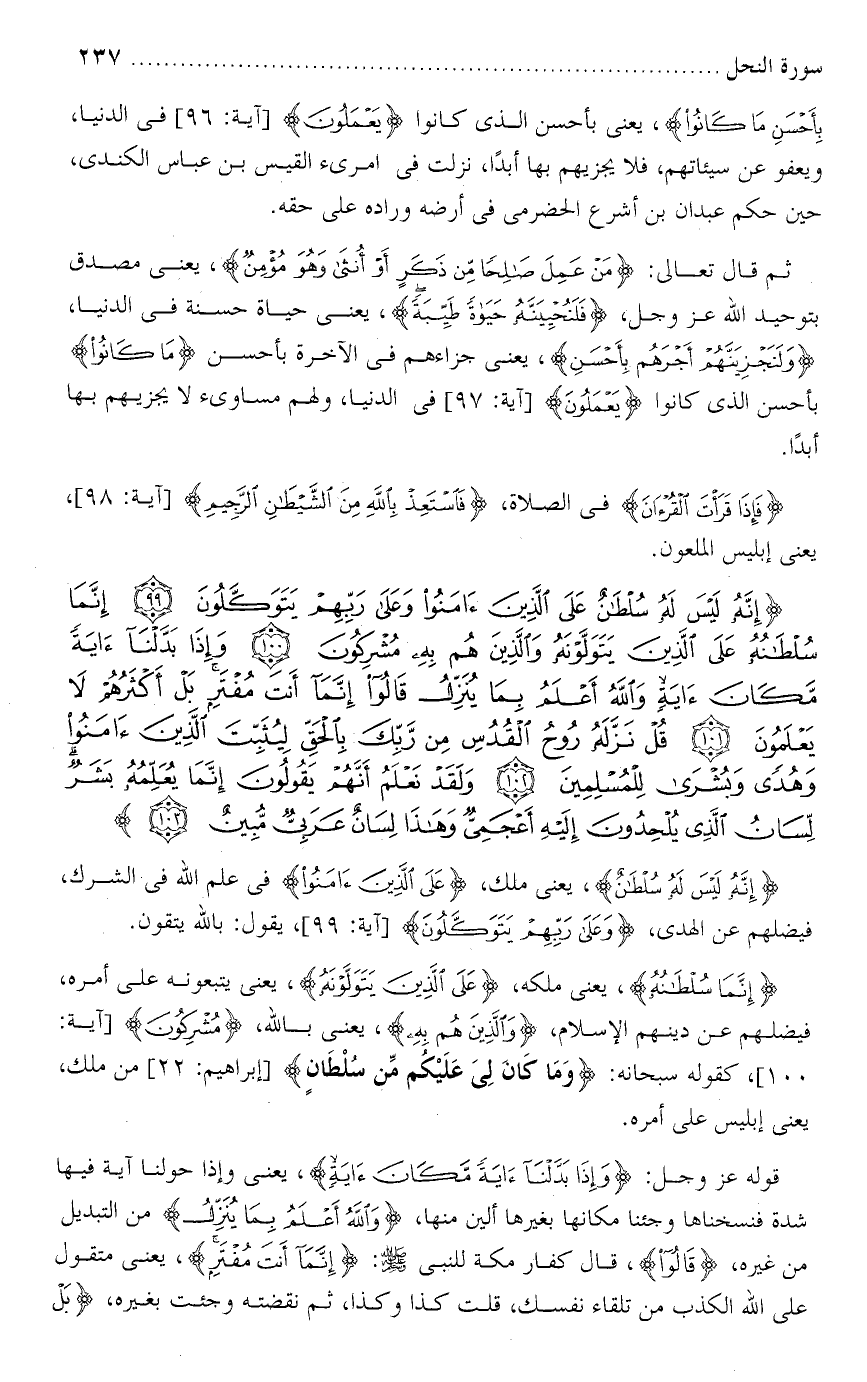 سورة النحل ................................................................ ٢٣٧
بِأَحْسَنِ مَا كَانُوا۟﴾، يعنى بأحسن الـذى كـانوا ﴿يَعْمَلُونَ﴾ [آية: ٩٦] فـى الدنيـا،
ويعفو عن سيئاتهم، فلا يجزيهم بها أبدًا، نزلت فى امرىء القيس بـن عباس الكندى،
حين حكم عبدان بن أشرع الحضرمى فى أرضه وراده على حقه.
ثـم قـال تعـالى: ﴿مَنْ عَمِلَ صَـٰلِحًا مِّن ذَكَرٍ أَوْ أُنثَىٰ وَهُوَ مُؤْمِنٌ﴾، يعنـى مصـدق
بتوحيـد الله عـز وجـل، ﴿فَلَنُحْيِيَنَّهُۥ حَيَوٰةً طَيِّبَةً﴾، يعنـى حيـاة حسـنة فـى الدنيـا،
﴿وَلَنَجْزِيَنَّهُمْ أَجْرَهُم بِأَحْسَنِ﴾، يعنـى جزاءهـم فـى الآخـرة بـأحسـن ﴿مَا كَانُوا۟﴾
بأحسـن الذى كانوا ﴿يَعْمَلُونَ﴾ [آية: ٩٧] فى الدنيـا، ولهـم مسـاوىء لا يجزيـهـم بـهـا
أبدًا.
﴿فَإِذَا قَرَأْتَ ٱلْقُرْءَانَ﴾ فـى الصـلاة، ﴿فَٱسْتَعِذْ بِٱللَّهِ مِنَ ٱلشَّيْطَـٰنِ ٱلرَّجِيمِ﴾ [آيـة: ٩٨]،
يعنى إبليس الملعون.
﴿إِنَّهُۥ لَيْسَ لَهُۥ سُلْطَـٰنٌ عَلَى ٱلَّذِينَ ءَامَنُوا۟ وَعَلَىٰ رَبِّهِمْ يَتَوَكَّلُونَ ٩٩ إِنَّمَا
سُلْطَـٰنُهُۥ عَلَى ٱلَّذِينَ يَتَوَلَّوْنَهُۥ وَٱلَّذِينَ هُم بِهِۦ مُشْرِكُونَ ١٠٠ وَإِذَا بَدَّلْنَآ ءَايَةً
مَّكَانَ ءَايَةٍ ۙ وَٱللَّهُ أَعْلَمُ بِمَا يُنَزِّلُ قَالُوٓا۟ إِنَّمَآ أَنتَ مُفْتَرٍۭ ۚ بَلْ أَكْثَرُهُمْ لَا
يَعْلَمُونَ ١٠١ قُلْ نَزَّلَهُۥ رُوحُ ٱلْقُدُسِ مِن رَّبِّكَ بِٱلْحَقِّ لِيُثَبِّتَ ٱلَّذِينَ ءَامَنُوا۟
وَهُدًى وَبُشْرَىٰ لِلْمُسْلِمِينَ ١٠٢ وَلَقَدْ نَعْلَمُ أَنَّهُمْ يَقُولُونَ إِنَّمَا يُعَلِّمُهُۥ بَشَرٌ ۗ
لِّسَانُ ٱلَّذِى يُلْحِدُونَ إِلَيْهِ أَعْجَمِىٌّ وَهَـٰذَا لِسَانٌ عَرَبِىٌّ مُّبِينٌ ١٠٣ ﴾
﴿إِنَّهُۥ لَيْسَ لَهُۥ سُلْطَـٰنٌ﴾، يعنى ملك، ﴿عَلَى ٱلَّذِينَ ءَامَنُوا۟﴾ فى علم الله فى الشـرك،
فيضلهم عن الهدى، ﴿وَعَلَىٰ رَبِّهِمْ يَتَوَكَّلُونَ﴾ [آية: ٩٩]، يقول: بالله يتقون.
﴿إِنَّمَا سُلْطَـٰنُهُۥ﴾، يعنى ملكه، ﴿عَلَى ٱلَّذِينَ يَتَوَلَّوْنَهُۥ﴾، يعنى يتبعونـه علـى أمره،
فيضلهـم عـن دينـهـم الإسـلام، ﴿وَٱلَّذِينَ هُم بِهِۦ﴾، يعنـى بـالله، ﴿مُشْرِكُونَ﴾ [آيـة:
١٠٠]، كقوله سبحانه: ﴿وَمَا كَانَ لِىَ عَلَيْكُم مِّن سُلْطَانٍ﴾ [إبراهيم: ٢٢] من ملك،
يعنى إبليس على أمره.
قوله عز وجـل: ﴿وَإِذَا بَدَّلْنَآ ءَايَةً مَّكَانَ ءَايَةٍ ۙ﴾، يعنـى وإذا حولنـا آيـة فيـها
شدة فنسخناها وجئنا مكانها بغيرها ألين منها، ﴿وَٱللَّهُ أَعْلَمُ بِمَا يُنَزِّلُ﴾ من التبديل
من غيره، ﴿قَالُوٓا۟﴾، قـال كفـار مكـة للنبـى ﷺ: ﴿إِنَّمَآ أَنتَ مُفْتَرٍۭ ۚ﴾، يعنـى متقـول
على الله الكذب من تلقاء نفسـك، قلـت كـذا وكـذا، ثـم نقضتـه وجئـت بغيره، ﴿بَلْ